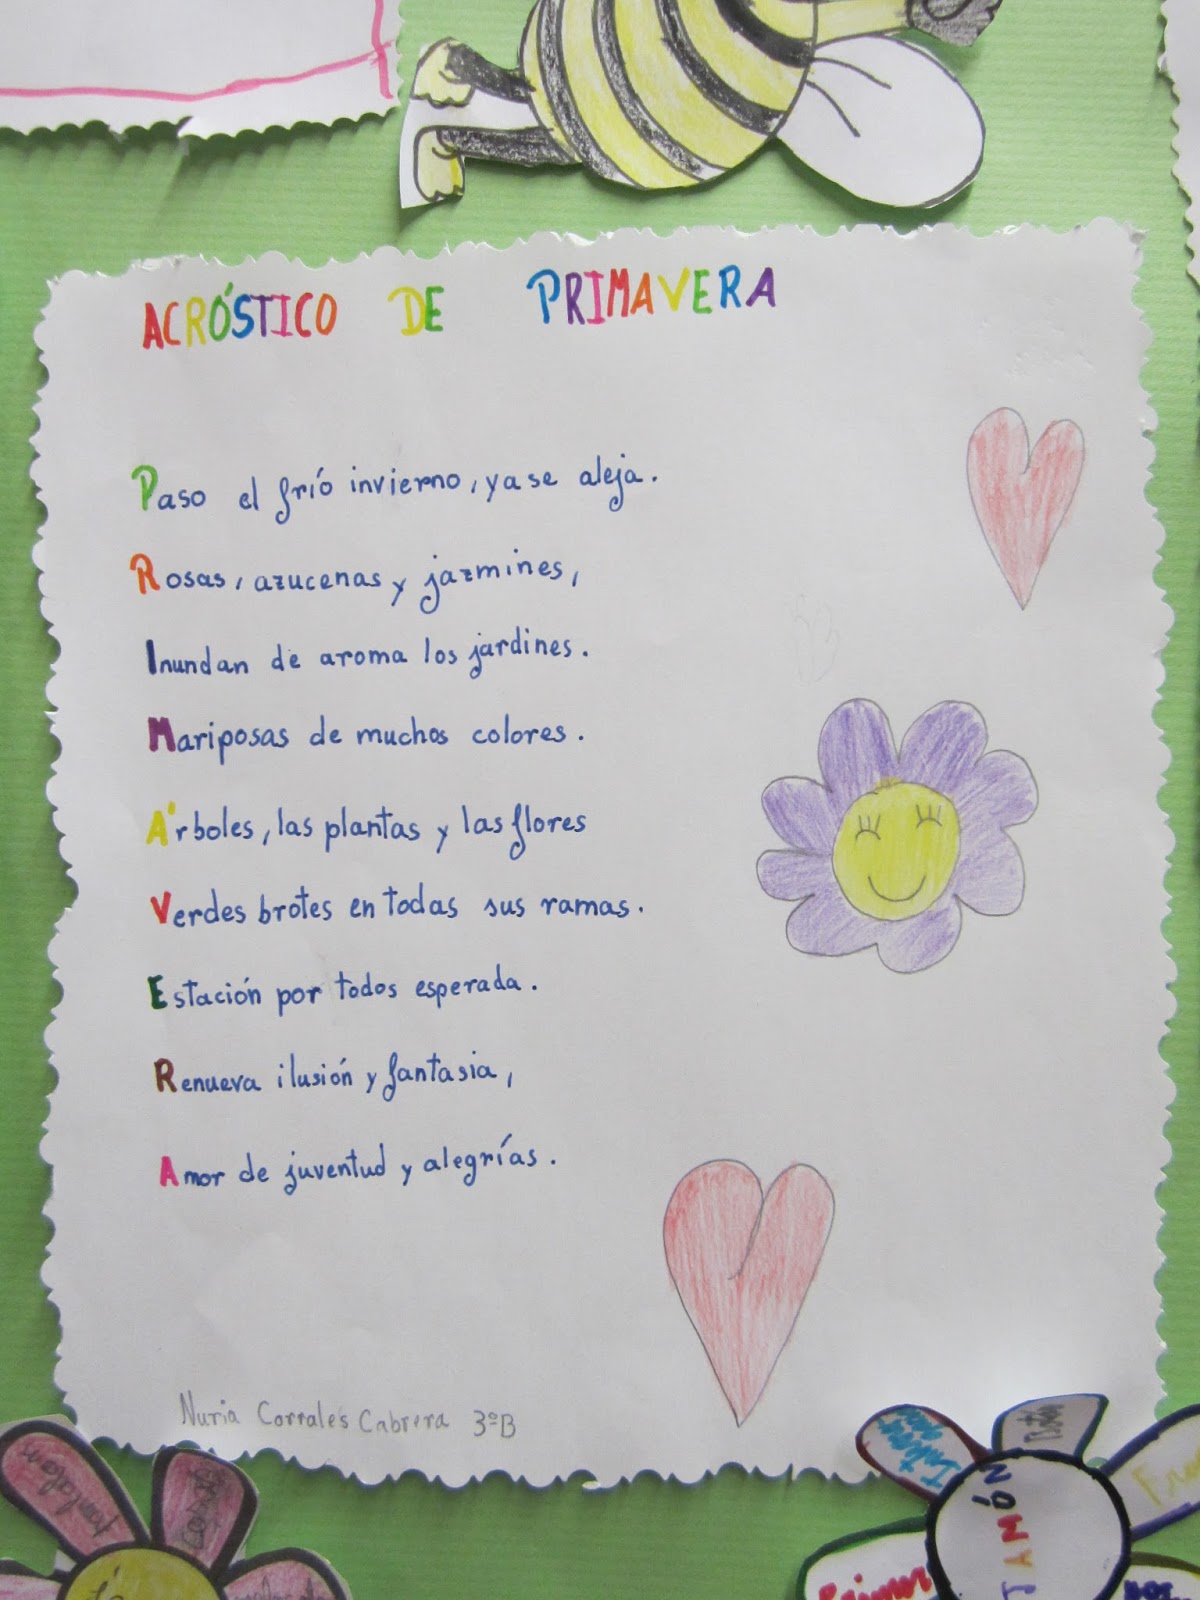 ACRÓSTICO DE PRIMAVERA
Paso el frío invierno, ya se aleja.
Rosas, azucenas y jazmines,
Inundan de aroma los jardines.
Mariposas de muchos colores.
Árboles, las plantas y las flores
Verdes brotes en todas sus ramas.
Estación por todos esperada.
Renueva ilusión y fantasia,
Amor de juventud y alegrías.
Nuria Corrales Cabrera 3ºB